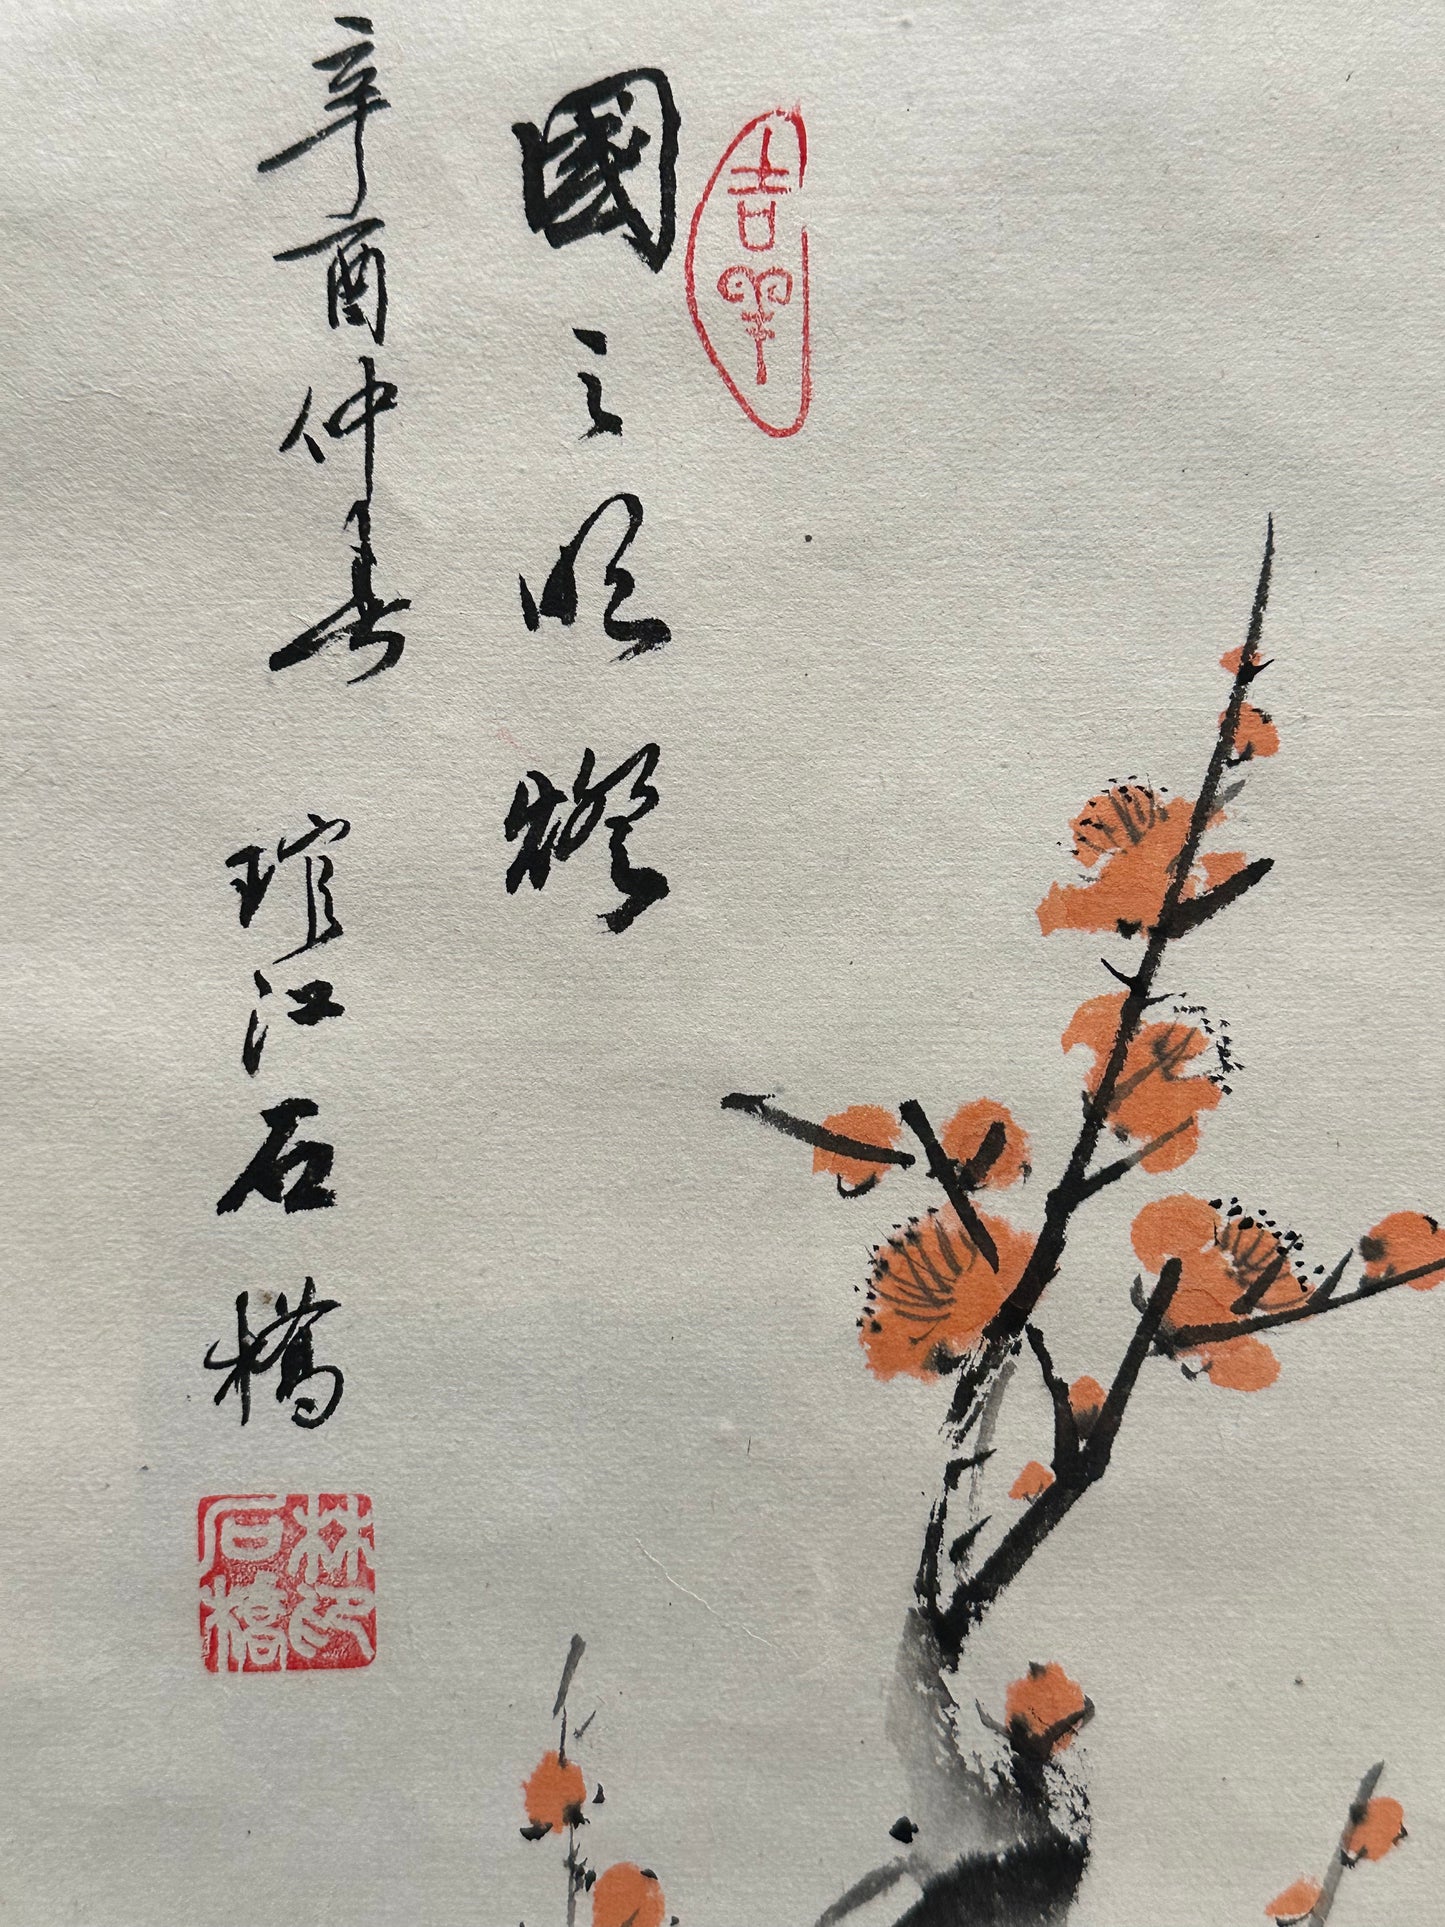 吉羊
國之明燈
辛酉仲春 琯江石橋
林印石橋